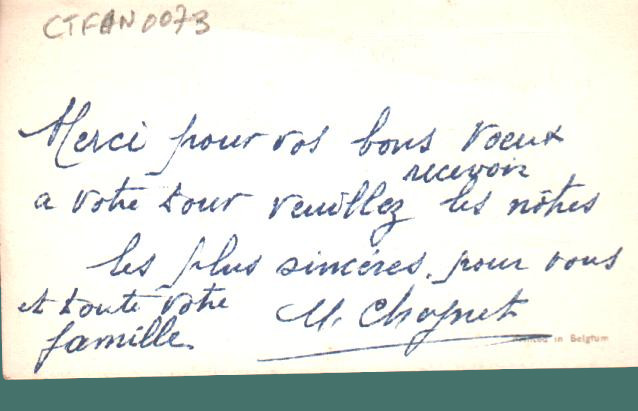 CTFAN0073
Merci pour vos bons vœux
a votre tour veuillez recevoir les nôtres
les plus sincères. pour vous
et toute votre
famille.
M. Choynet
Printed in Belgium